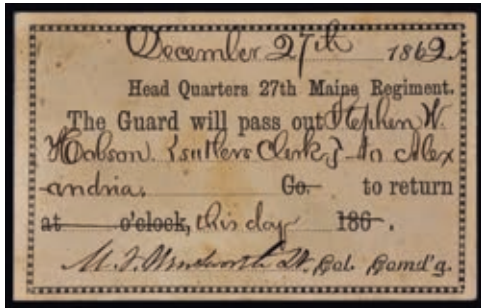 December 27th 1862.
Head Quarters 27th Maine Regiment.
The Guard will pass out Stephen W.
Hobson. {sutlers Clerk} to Alex
andria. Co. to return
at o'clock, this day 186 .
M. F. Wentworth Lt. Col. Comd'g.